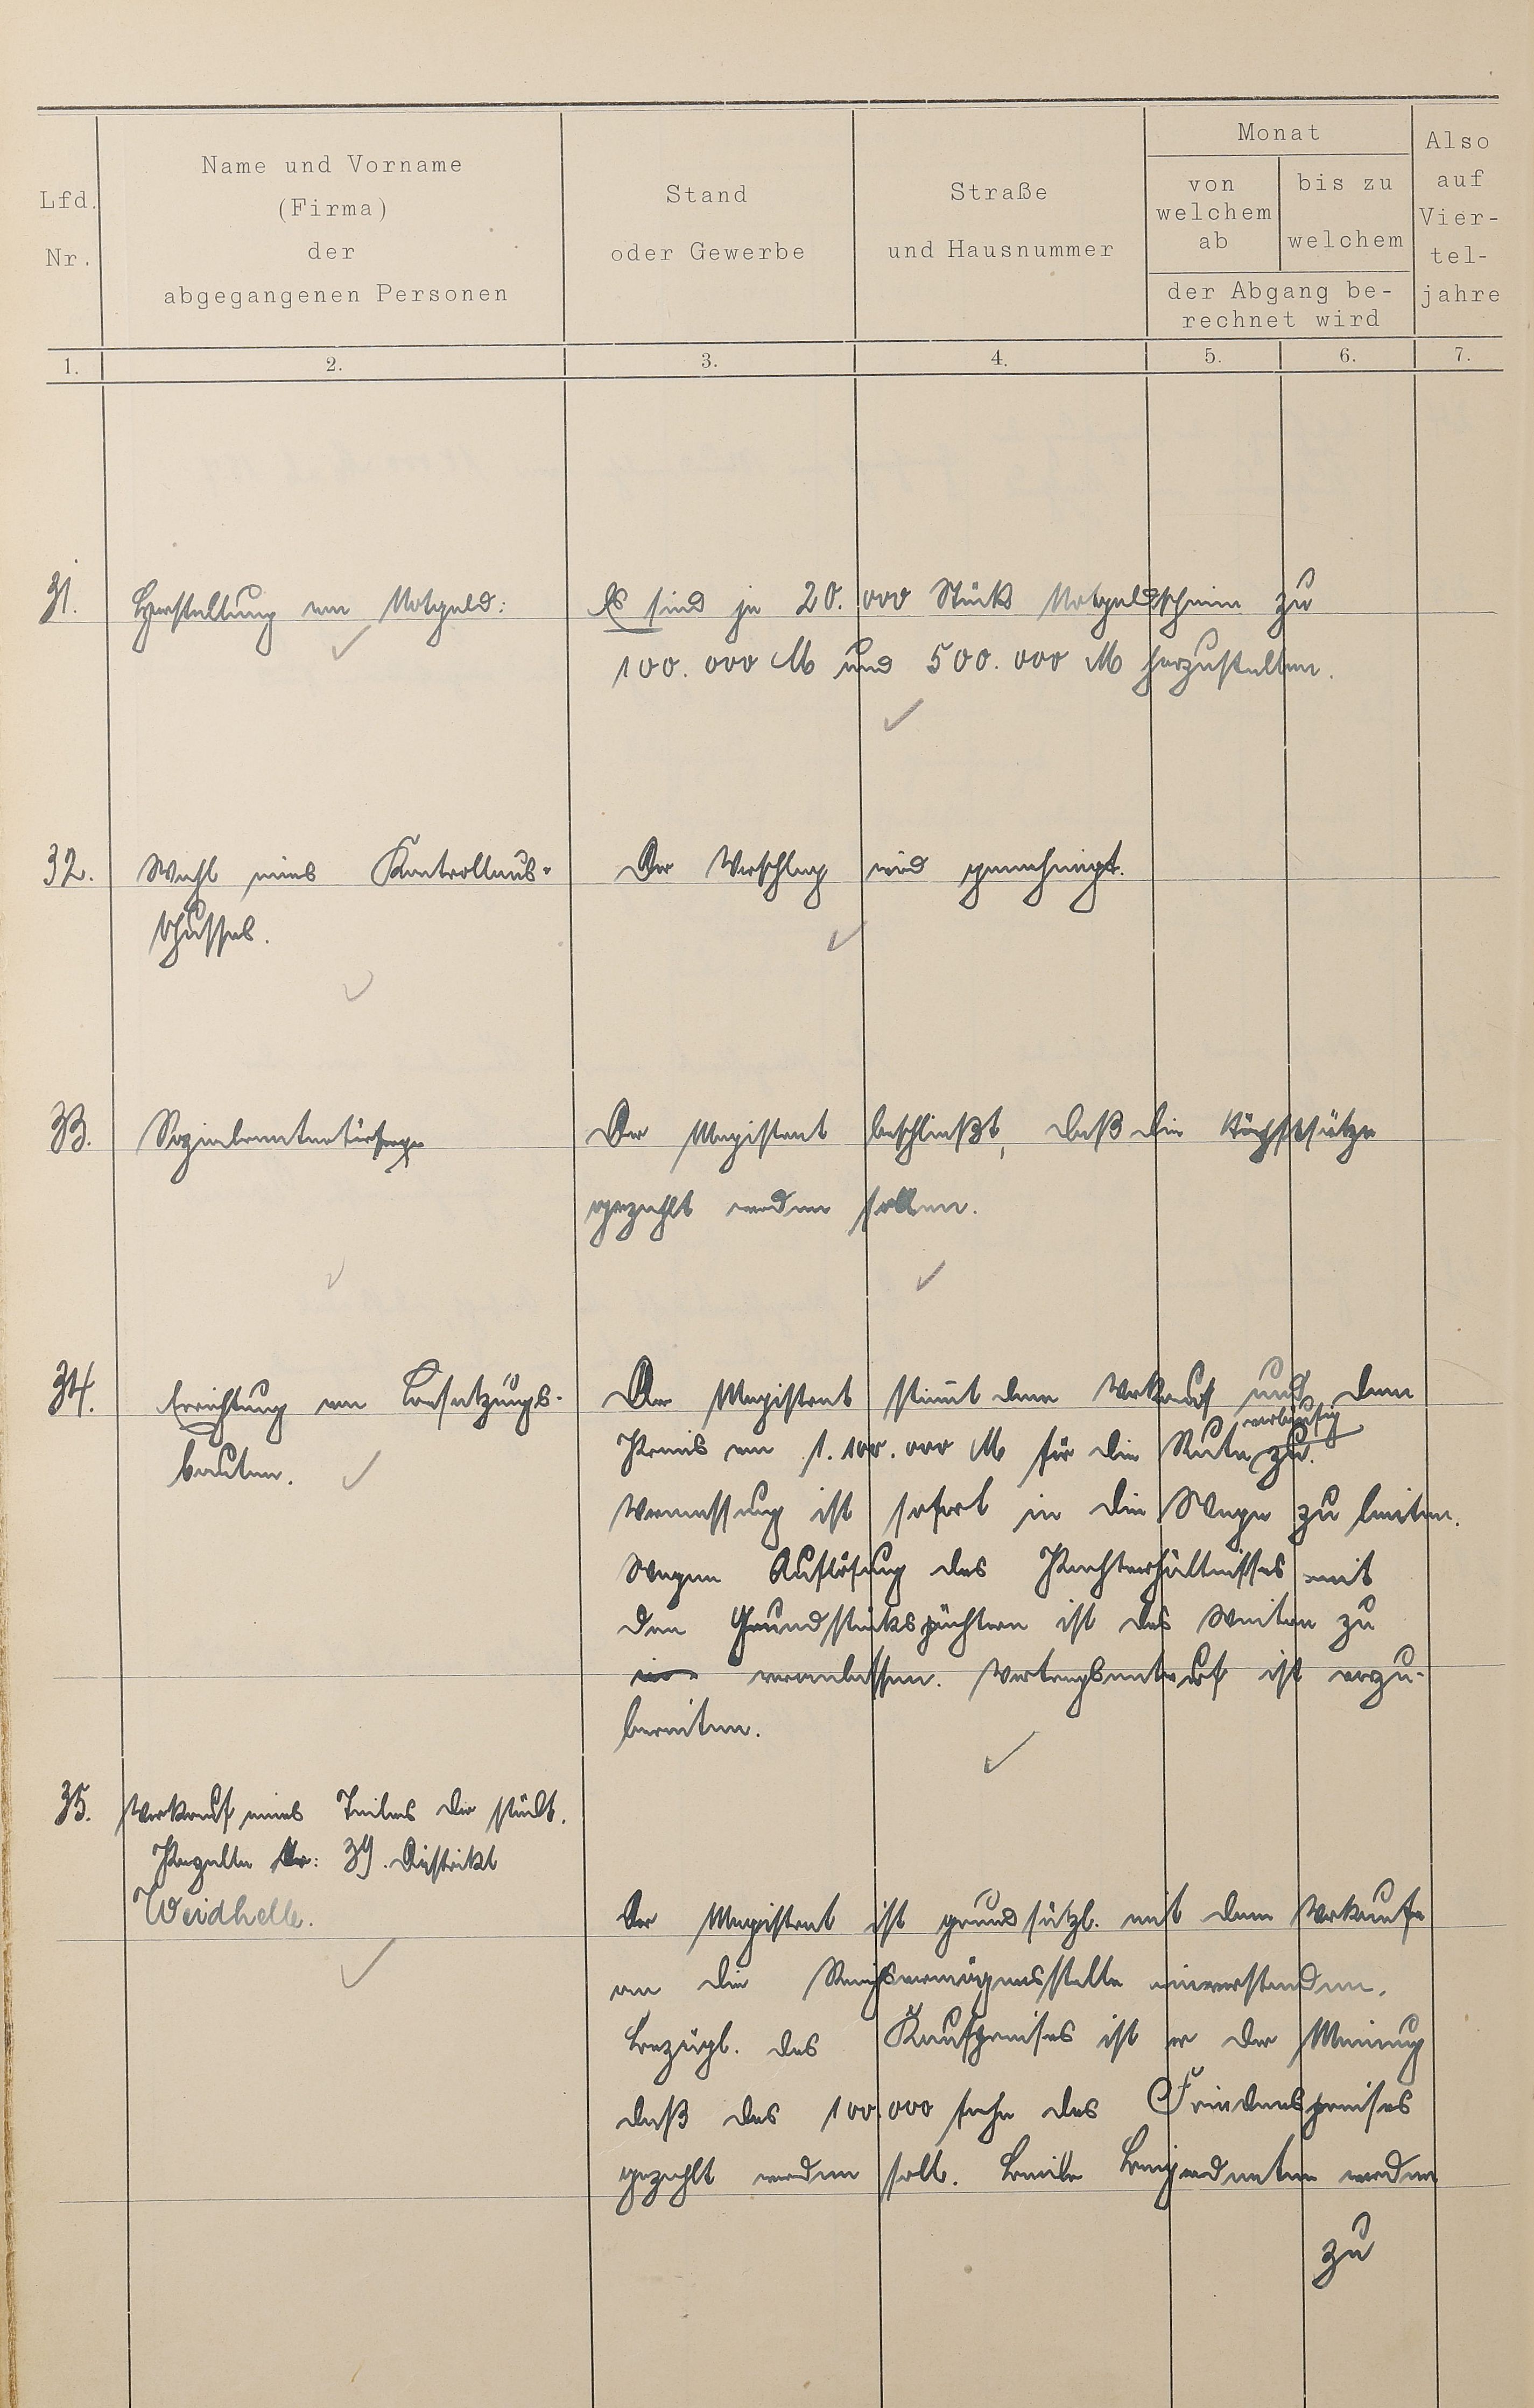 Lfd. Nr.
Name und Vorname
(Firma)
der
abgegangenen Personen
Stand
oder Gewerbe
Straße
und Hausnummer
Monat
von welchem ab
bis zu welchem
der Abgang be-
rechnet wird
Also auf Vier- tel- jahre
1. 2. 3. 4. 5. 6. 7.
31. Herstellung von Notgeld: Es sind je 20.000 Stück Notgeldscheine zu
100.000 M und 500.000 M herzustellen.
32. Wahl eines Kontrollaus- Der Vorschlag wird genehmigt.
schusses.
33. Sozialrentnerfürsorge Der Magistrat beschließt, daß die Höchstsätze
gezahlt werden sollen.
34. Errichtung von Besatzungs- Der Magistrat stimmt dem Verkauf und dem
vorläufig
bauten. Preis von 1.100.000 M für die Rute zu.
Vermessung ist sofort in die Wege zu leiten.
Wegen Auflösung des Pachtverhältnisses mit
den Grundstückspächtern ist das Weitere zu
veranlassen. Vertragsentwurf ist vorzu-
bereiten.
35. Verkauf eines Teiles der städt.
Parzelle Nr: 39. Distrikt
Weidhelle.
Der Magistrat ist grundsätzl. mit dem Verkaufe
an die Reichsvermögensstelle einverstanden.
Bezügl. des Kaufpreises ist er der Meinung
daß das 100.000 fache des Friedenspreises
gezahlt werden soll. Beide Beigeordneten werden
zu